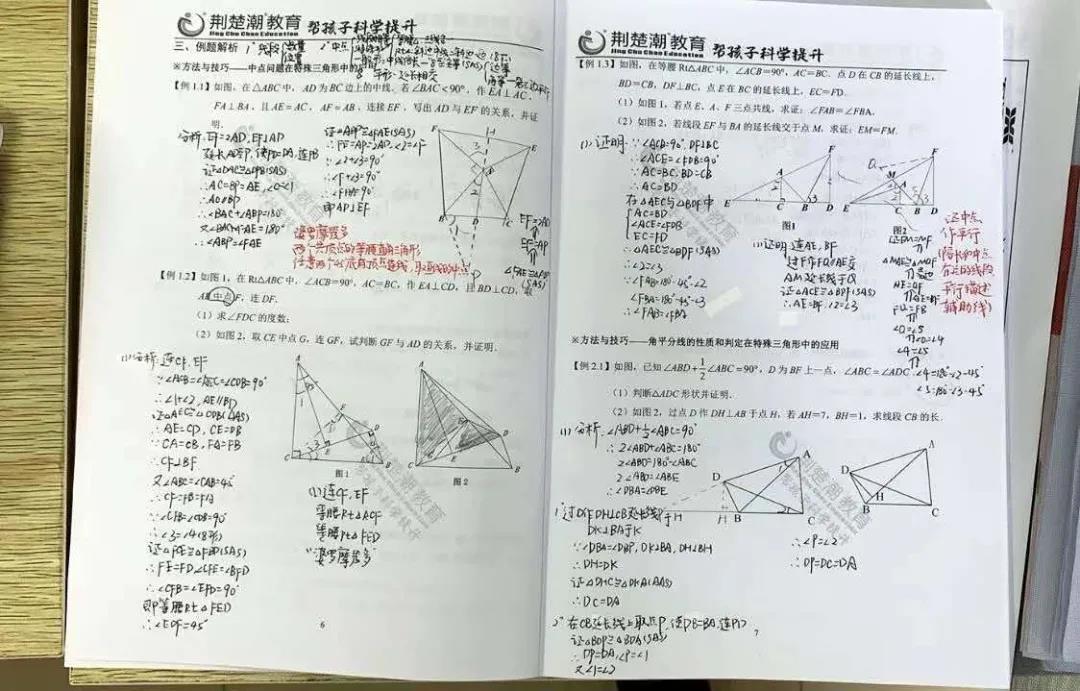 荆楚潮教育 帮孩子科学提升
Jing Chu Chao Education
三、例题解析
※方法与技巧——中点问题在特殊三角形中的
【例 1.1】如图，在△ABC中，AD为BC边上的中线，若∠BAC＜90°，作EA⊥AC，
FA⊥BA，且AE=AC，AF=AB，连接EF，写出AD与EF的关系，并证
明.
分析，EF=2AD, EF⊥AD
证△DAC≌△DPB(SAS)
∴AC=BP=AE, ∠C=∠1
∴AC∥BP
∴∠BAC+∠ABP=180°
又∠BAC+∠FAE=180°
∴∠ABP=∠FAE
证△ABP≌△FAE(SAS)
∴FE=AP=2AD, ∠2=∠F
∴∠2+∠3=90°
∴∠F+∠3=90°
即AD⊥EF
婆罗摩笈多
两个共顶点的等腰直角三角形
【例 1.2】如图 1，在 Rt△ABC中，∠ACB=90°，AC=BC，作EA⊥CD，且BD⊥CD，取
AB中点F，连 DF.
（1）求∠FDC的度数；
（2）如图 2，取CE中点G，连GF，试判断GF与AD的关系，并证明.
(1)分析：连CF, EF
∵∠ACB=∠AEC=∠CDB=90°
∴∠1=∠2, AE∥BD
证△AEC≌△CDB(AAS)
∴AE=CD, CE=DB
∵CA=CB, FA=FB
∴CF⊥BF
又∠ABC=∠CAB=45°
∴CF=FB=FA
∵∠CFB=∠CDB=90°
∴∠3=∠4(8字)
证△FCE≌△FBD(SAS)
∴FE=FD, ∠CFE=∠BFD
∴∠CFB=∠EFD=90°
即等腰Rt△FED
∴∠EDF=45°
图 1
图 2
(1)连CF, EF
等腰Rt△ACF
等腰Rt△FED
“婆罗摩笈多”
6
荆楚潮教育 帮孩子科学提升
Jing Chu Chao Education
【例 1.3】如图，在等腰 Rt△ABC中，∠ACB=90°，AC=BC．点D在CB的延长线上，
BD=CB，DF⊥BC，点E在BC的延长线上，EC=FD.
（1）如图 1，若点E、A、F三点共线，求证：∠FAB=∠FBA.
（2）如图 2，若线段EF与BA的延长线交于点M，求证：EM=FM.
(1)证明：∵∠ACB=90°, DF⊥BC
∴∠ACE=∠FDB=90°
∵AC=BC, BD=CB
∴AC=BD
在△AEC与△BDF中
AC=BD
∠ACE=∠FDB
EC=FD
∴△AEC≌△BDF(SAS)
∴∠2=∠3
∵∠FAB=180°-45°-∠2
∠FBA=180°-45°-∠3
∴∠FAB=∠FBA
图1
图2
证明：连AE, BF
过F作FQ∥AE交
AM延长线于Q
证△ACE≌△BDF(SAS)
∴AE=BF, ∠2=∠3
证EM=MF
AE=QF
FQ=FB
∠Q=∠5
∠4=∠5
∠4=180°-∠2-45°
∠5=180°-∠3-45°
遇中点
作平行
平行描述
辅助线)
※方法与技巧——角平分线的性质和判定在特殊三角形中的应用
【例 2.1】如图，已知∠ABD+1/2∠ABC=90°，D为BF上一点，∠ABC=∠ADC.
（1）判断△ADC形状并证明.
（2）如图 2，过点D作DH⊥AB于点H，若AH=7，BH=1，求线段CB的长.
(1)分析：∠ABD+1/2∠ABC=90°
∴2∠ABD+∠ABC=180°
2∠ABD=180°-∠ABC
2∠ABD=∠ABE
∴∠DBA=∠DBE
1°过D作DH⊥CB延长线于H
DK⊥BA于K
∵∠DBA=∠DBP, DK⊥BA, DH⊥BH
∴DH=DK
证△DHC≌△DKA(AAS)
∴DC=DA
2°在CB延长线上取点P,使PB=BA,连PD
证△BDP≌△BDA(SAS)
∴DP=DA, ∠P=∠1
又∠1=∠2
∴∠P=∠2
∴DP=DC=DA
7